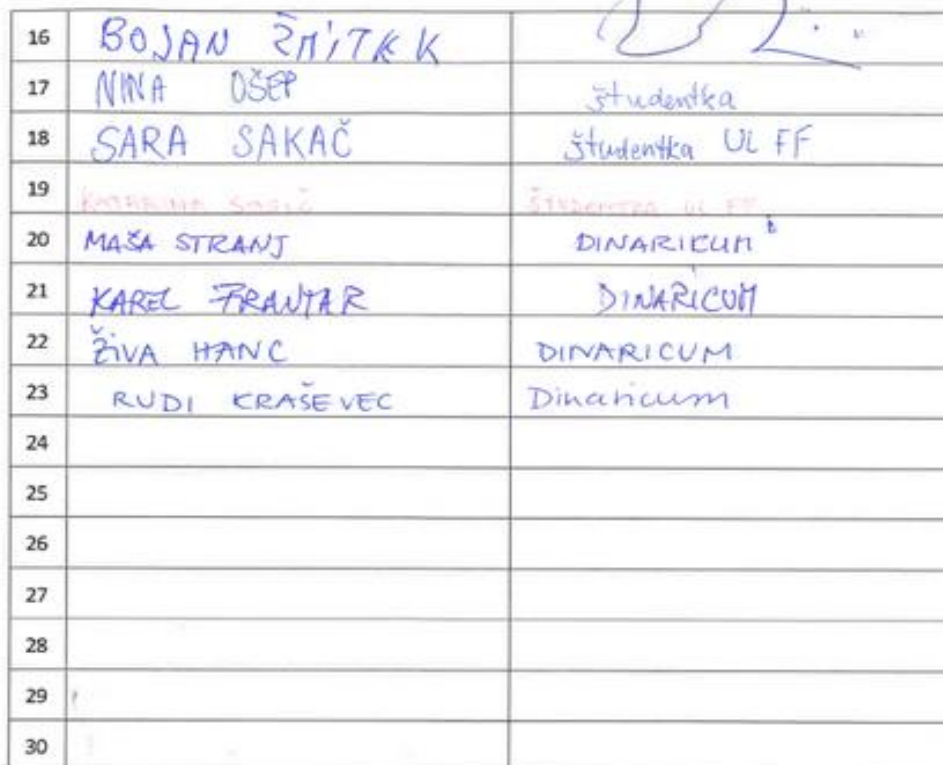 16 BOJAN ŽMITEK K
17 NINA OŠEP študentka
18 SARA SAKAČ študentka UL FF
19 KATARINA ŠTUDENTKA UL FF
20 MAŠA STRANJ DINARIKUM
21 KAREL FRANTAR DINARICUM
22 ŽIVA HANC DINARICUM
23 RUDI KRAŠEVEC Dinaricum
24
25
26
27
28
29
30